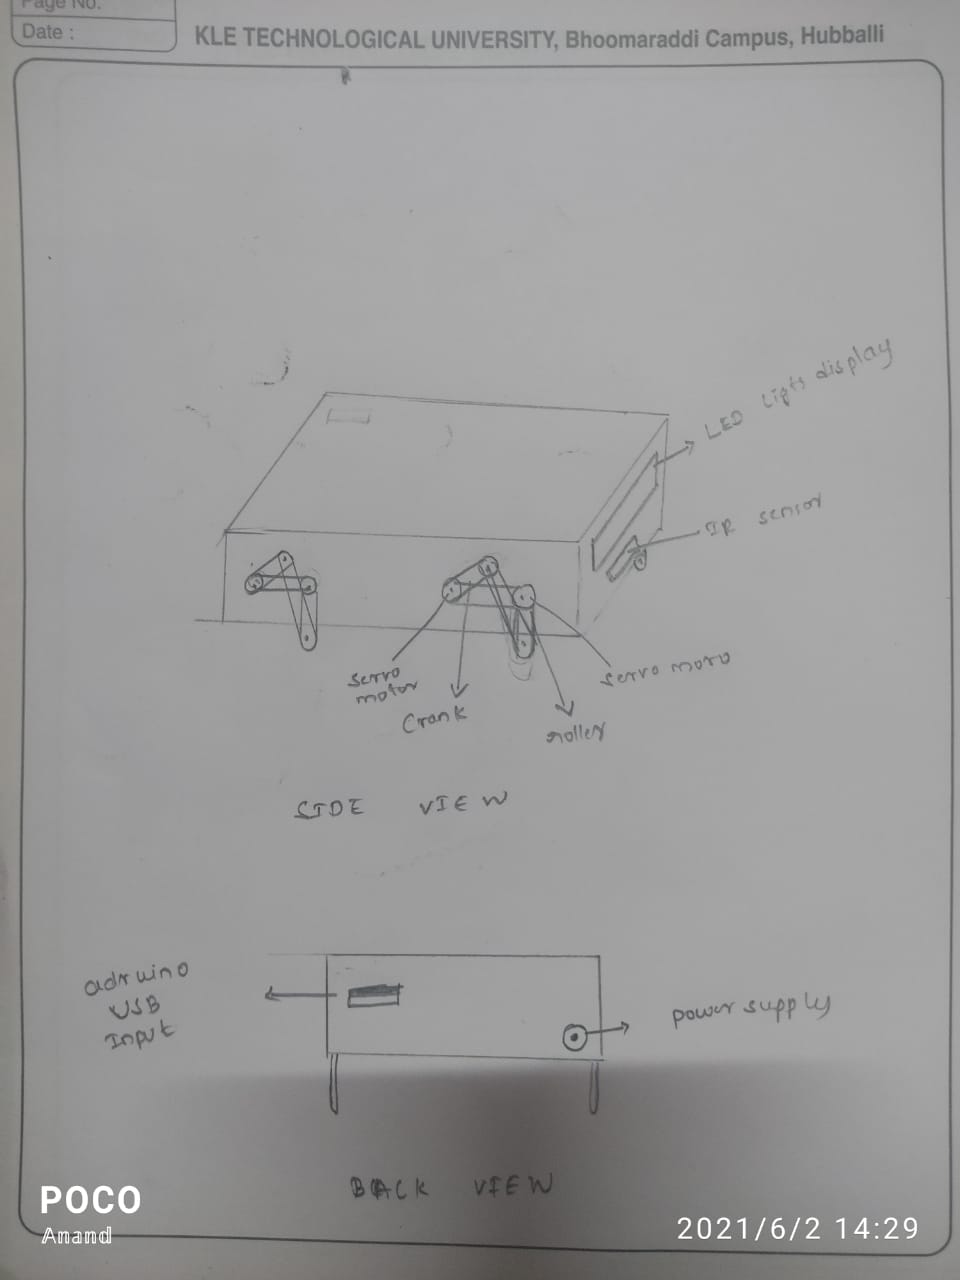 Page No.
Date :
KLE TECHNOLOGICAL UNIVERSITY, Bhoomaraddi Campus, Hubballi
LED Ligts display
IR sensor
servo
motor
Crank
roller
servo moro
SIDE VIEW
adruino
USB
Input
power supply
BACK VIEW
POCO
Anand
2021/6/2 14:29